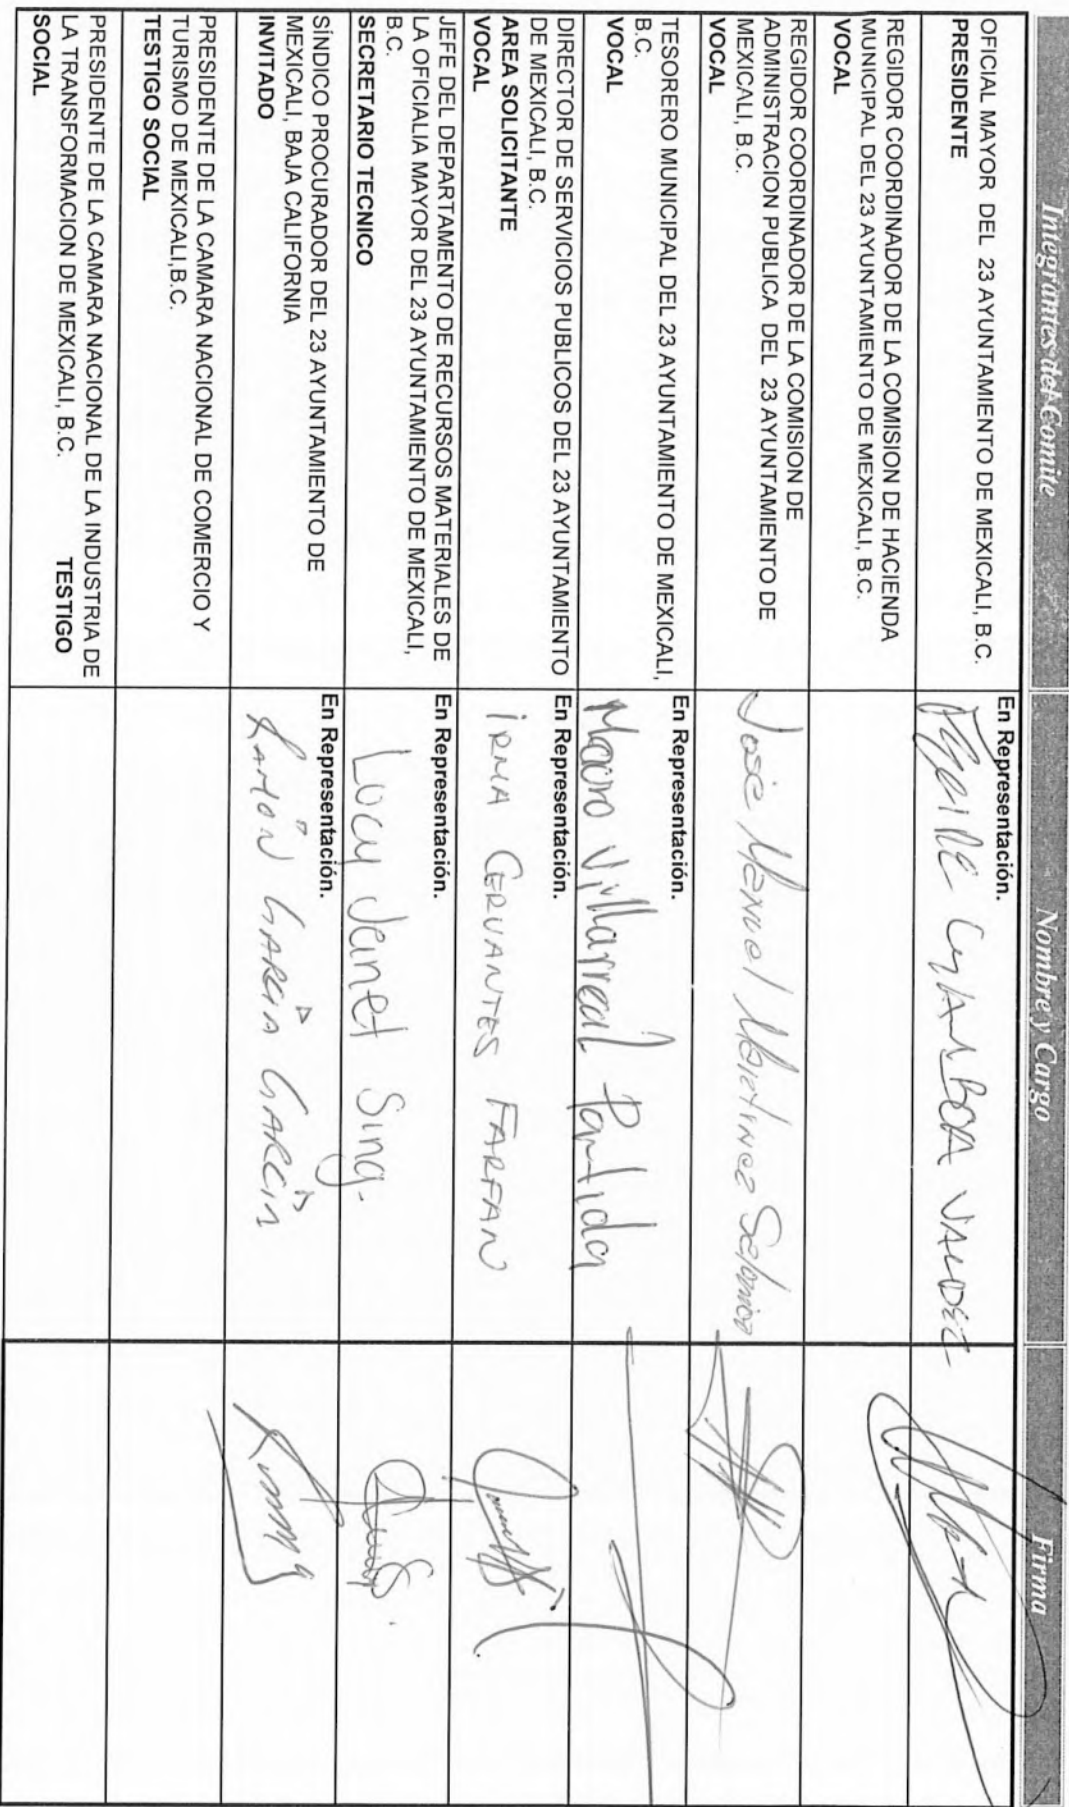 Integrantes del Comite
Nombre y Cargo
Firma
OFICIAL MAYOR DEL 23 AYUNTAMIENTO DE MEXICALI, B.C.
PRESIDENTE
En Representación.
VALDEZ
REGIDOR COORDINADOR DE LA COMISION DE HACIENDA
MUNICIPAL DEL 23 AYUNTAMIENTO DE MEXICALI, B.C.
VOCAL
REGIDOR COORDINADOR DE LA COMISION DE
ADMINISTRACION PUBLICA DEL 23 AYUNTAMIENTO DE
MEXICALI, B.C.
VOCAL
José Manuel Martinez
TESORERO MUNICIPAL DEL 23 AYUNTAMIENTO DE MEXICALI,
B.C.
VOCAL
En Representación.
Villarreal Partida
DIRECTOR DE SERVICIOS PUBLICOS DEL 23 AYUNTAMIENTO
DE MEXICALI, B.C.
AREA SOLICITANTE
VOCAL
En Representación.
IRMA CERVANTES FARFAN
JEFE DEL DEPARTAMENTO DE RECURSOS MATERIALES DE
LA OFICIALIA MAYOR DEL 23 AYUNTAMIENTO DE MEXICALI,
B.C.
SECRETARIO TECNICO
En Representación.
Lucy Janet Sing.
SÍNDICO PROCURADOR DEL 23 AYUNTAMIENTO DE
MEXICALI, BAJA CALIFORNIA
INVITADO
En Representación.
RAMÓN GARCÍA GARCÍA
PRESIDENTE DE LA CAMARA NACIONAL DE COMERCIO Y
TURISMO DE MEXICALI,B.C.
TESTIGO SOCIAL
PRESIDENTE DE LA CAMARA NACIONAL DE LA INDUSTRIA DE
LA TRANSFORMACION DE MEXICALI, B.C. TESTIGO
SOCIAL